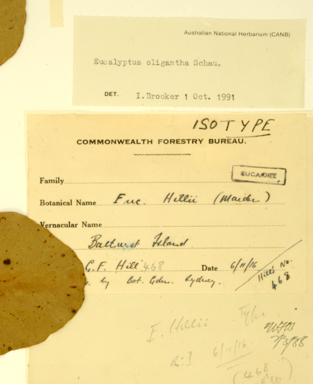 Australian National Herbarium (CANB)
Eucalyptus oligantha Schau.
DET. I.Brooker 1 Oct. 1991
ISOTYPE
COMMONWEALTH FORESTRY BUREAU.
EUCARPIEE
Family
Botanical Name Euc. Hillii (Maiden)
Vernacular Name
Bathurst Island
G.F. Hill 468 Date 6/11/16
by Bot. Gdn. Sydney.
Hills No. 468
E. Hillii Type
6/11/16
(468